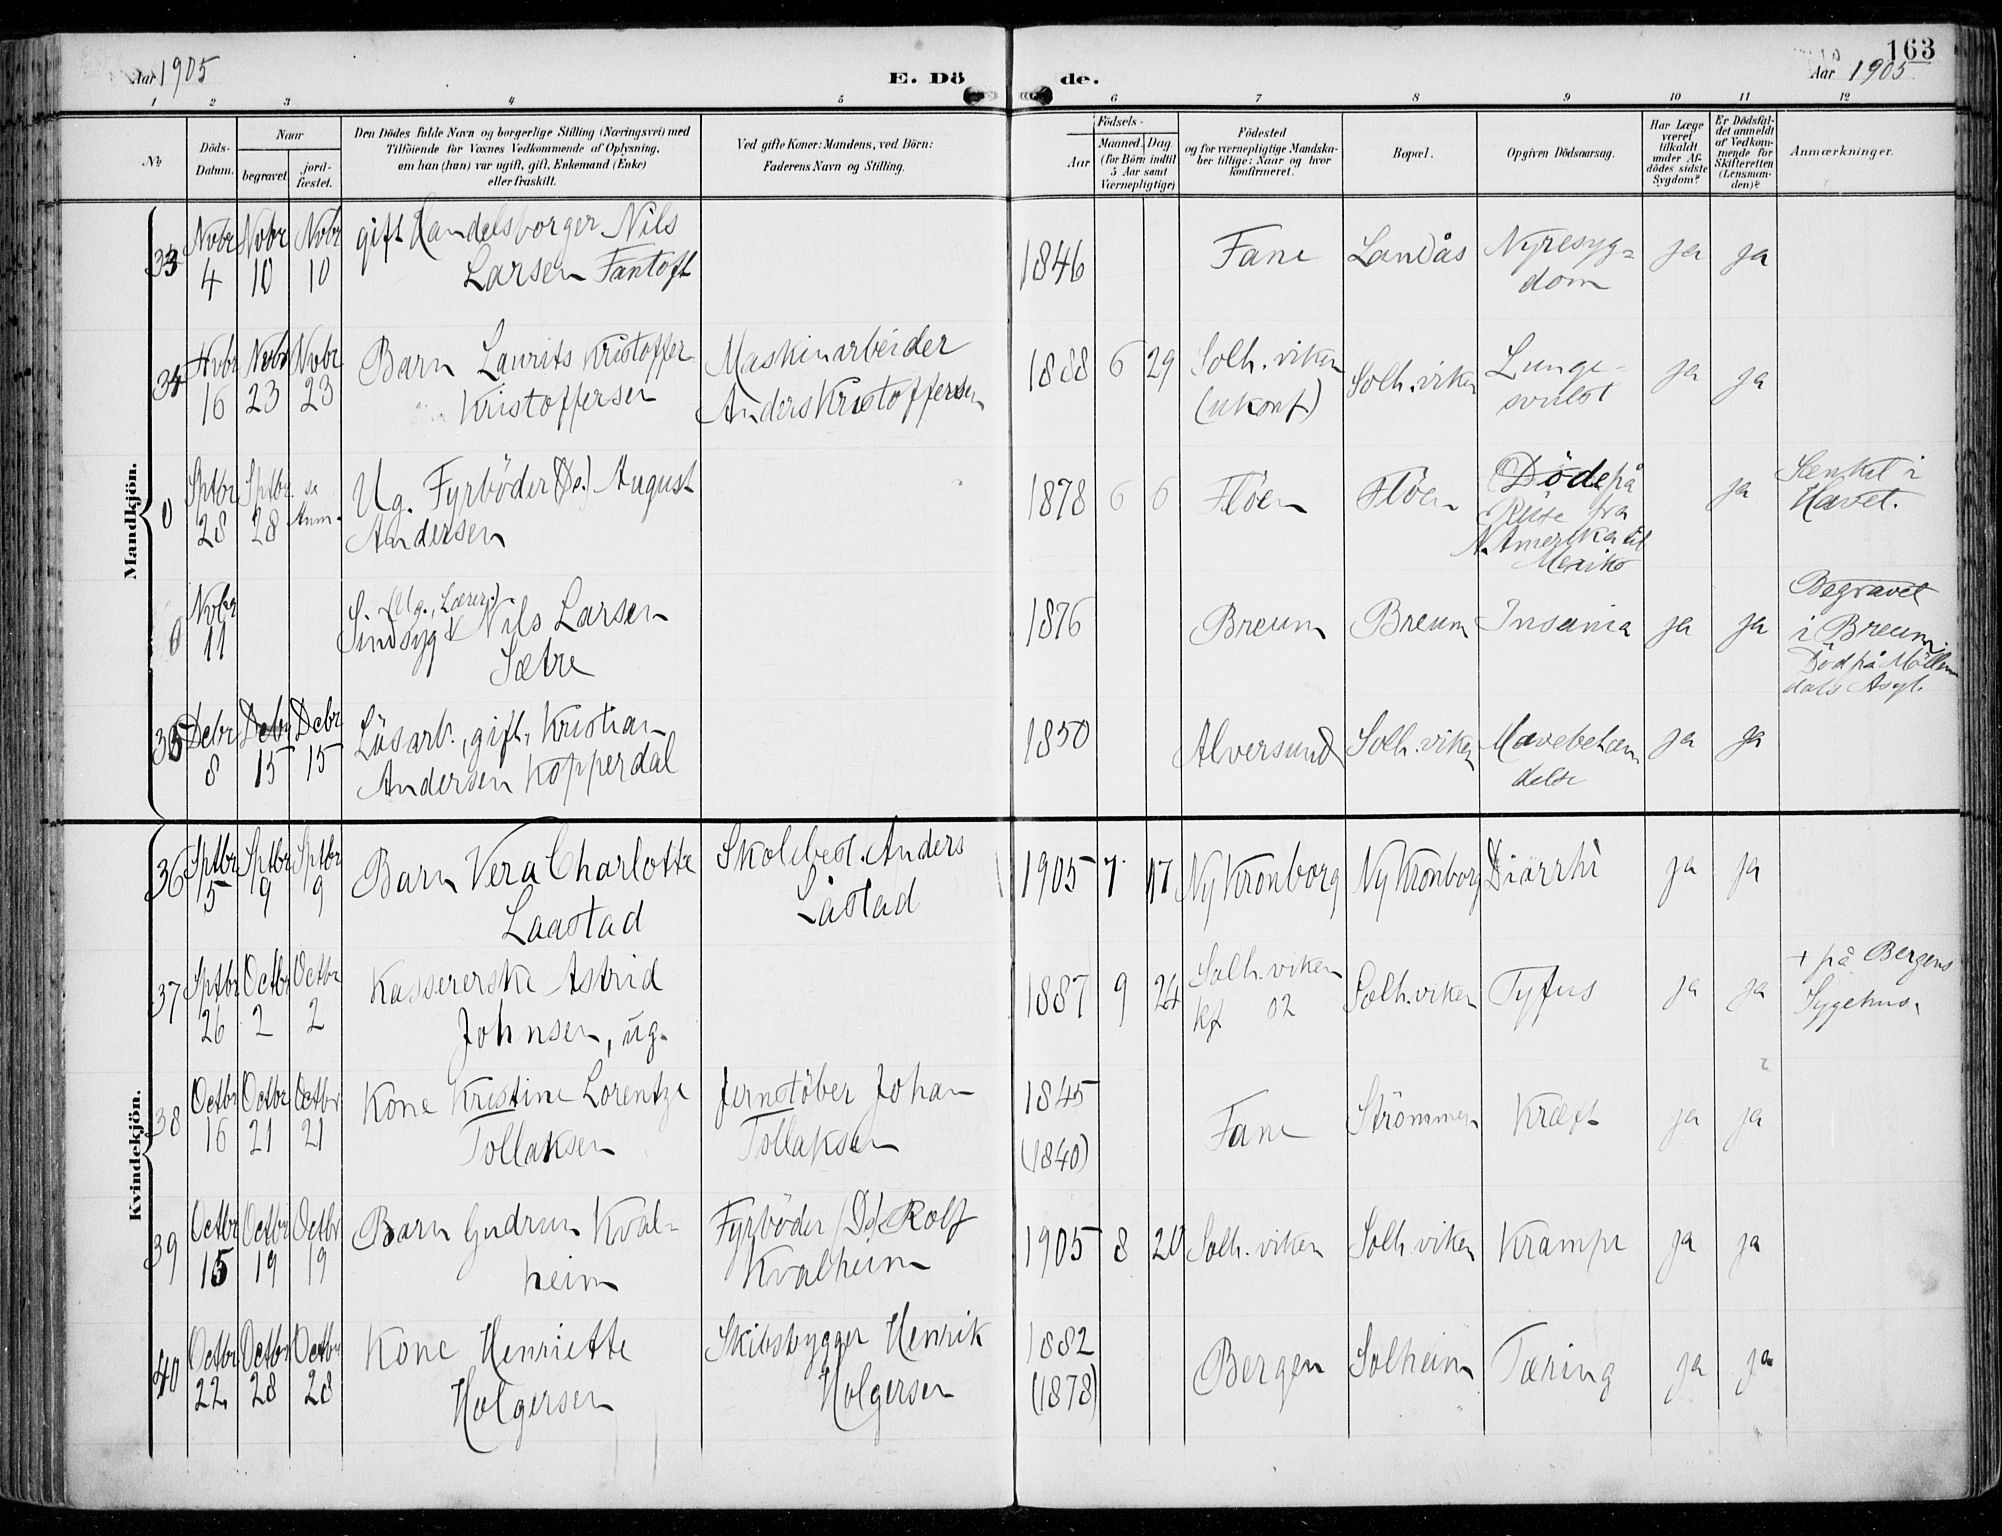 Aar 1905
E. Dö
de.
163
Aar 1905
1 2 3 4 5 6 7 8 9 10 11 12
No
Döds-
Datum.
Naar
begravet.
jord-
fæstet.
Den Dödes fulde Navn og borgerlige Stilling (Næringsvei) med
Tilföiende for Voxnes Vedkommende af Oplysning,
om han (hun) var ugift, gift, Enkemand (Enke)
eller fraskilt.
Ved gifte Koner: Mandens, ved Börn:
Faderens Navn og Stilling.
Födsels-
Aar
Maaned. Dag.
(for Börn indtil
5 Aar samt
Værnepligtige)
Födested
og for værnepligtige Mandska-
ber tillige: Naar og hvor
konfirmeret.
Bopæl.
Opgiven Dödsaarsag.
Har Læge
været
tilkaldt
under Af-
dödes sidste
Sygdom?
Er Dödsfal-
det anmeldt
af Vedkom-
mende for
Skifteretten
(Lensman-
den)?
Anmærkninger.
Mandkjön.
33 Nvbr Nvbr Nvbr gift Handelsborger Nils
4 10 10 Larsen Fantoft
1846 Fane Landås Nyresyg=
dom
ja ja
34 Nvbr Nvbr Nvbr Barn Laurits Kristoffer
16 23 23 Kristoffersen
Maskinarbeider
Anders Kristoffersen
1888 6 29 Solh.viken
(ukonf)
Solh.viken Lunge-
svulst
ja ja
0 Sptbr Sptbr. se Ug. Fyrböder (Ds.) August
28 28 Anm. Andersen
1878 6 6 Flöen Flöen Döde på
Reise fra
N. Amerika til
Mexiko
ja Sænket i
Havet.
0 Nvbr
11
S. (Ug., Lærer)
Sindsyg Nils Larsen
Sætre
1876 Breum Breum Insania ja ja Begravet
i Breum.
Död på Möllen
dals Asyl.
35 Debr Debr Debr Lösarb., gift, Kristian
8 15 15 Andersen Kopperdal
1850 Alversund Solh.viken Mavebetæn
delse
ja ja
Kvindekjön.
36 Sptbr Sptbr Sptbr Barn Vera Charlotte
5 9 9 Laastad
Skolebest. Anders
Låstad
1905 7 17 Ny Kronborg Ny Kronborg Diarrhè ja ja
37 Sptbr Octbr Octbr Kassererske Astrid
26 2 2 Johnsen, ug.
1887 9 24 Solh.viken
kf 02
Solh.viken Tyfus ja ja + på Bergens
Sygehus.
38 Octbr Octbr Octbr Kone Kristine Lorentze
16 21 21 Tollaksen
Jernstöber Johan
Tollaksen
1845
(1840)
Fane Strömmen Kræft ja ja
39 Octbr Octbr Octbr Barn Gudrun Kval-
15 19 19 heim
Fyrböder (Ds) Rolf
Kvalheim
1905 8 20 Solh.viken Solh.viken Krampe ja ja
40 Octbr Octbr Octbr Kone Henriette
22 28 28 Holgersen
Skibsbygger Henrik
Holgersen
1882
(1878)
Bergen Solheim Tæring ja ja